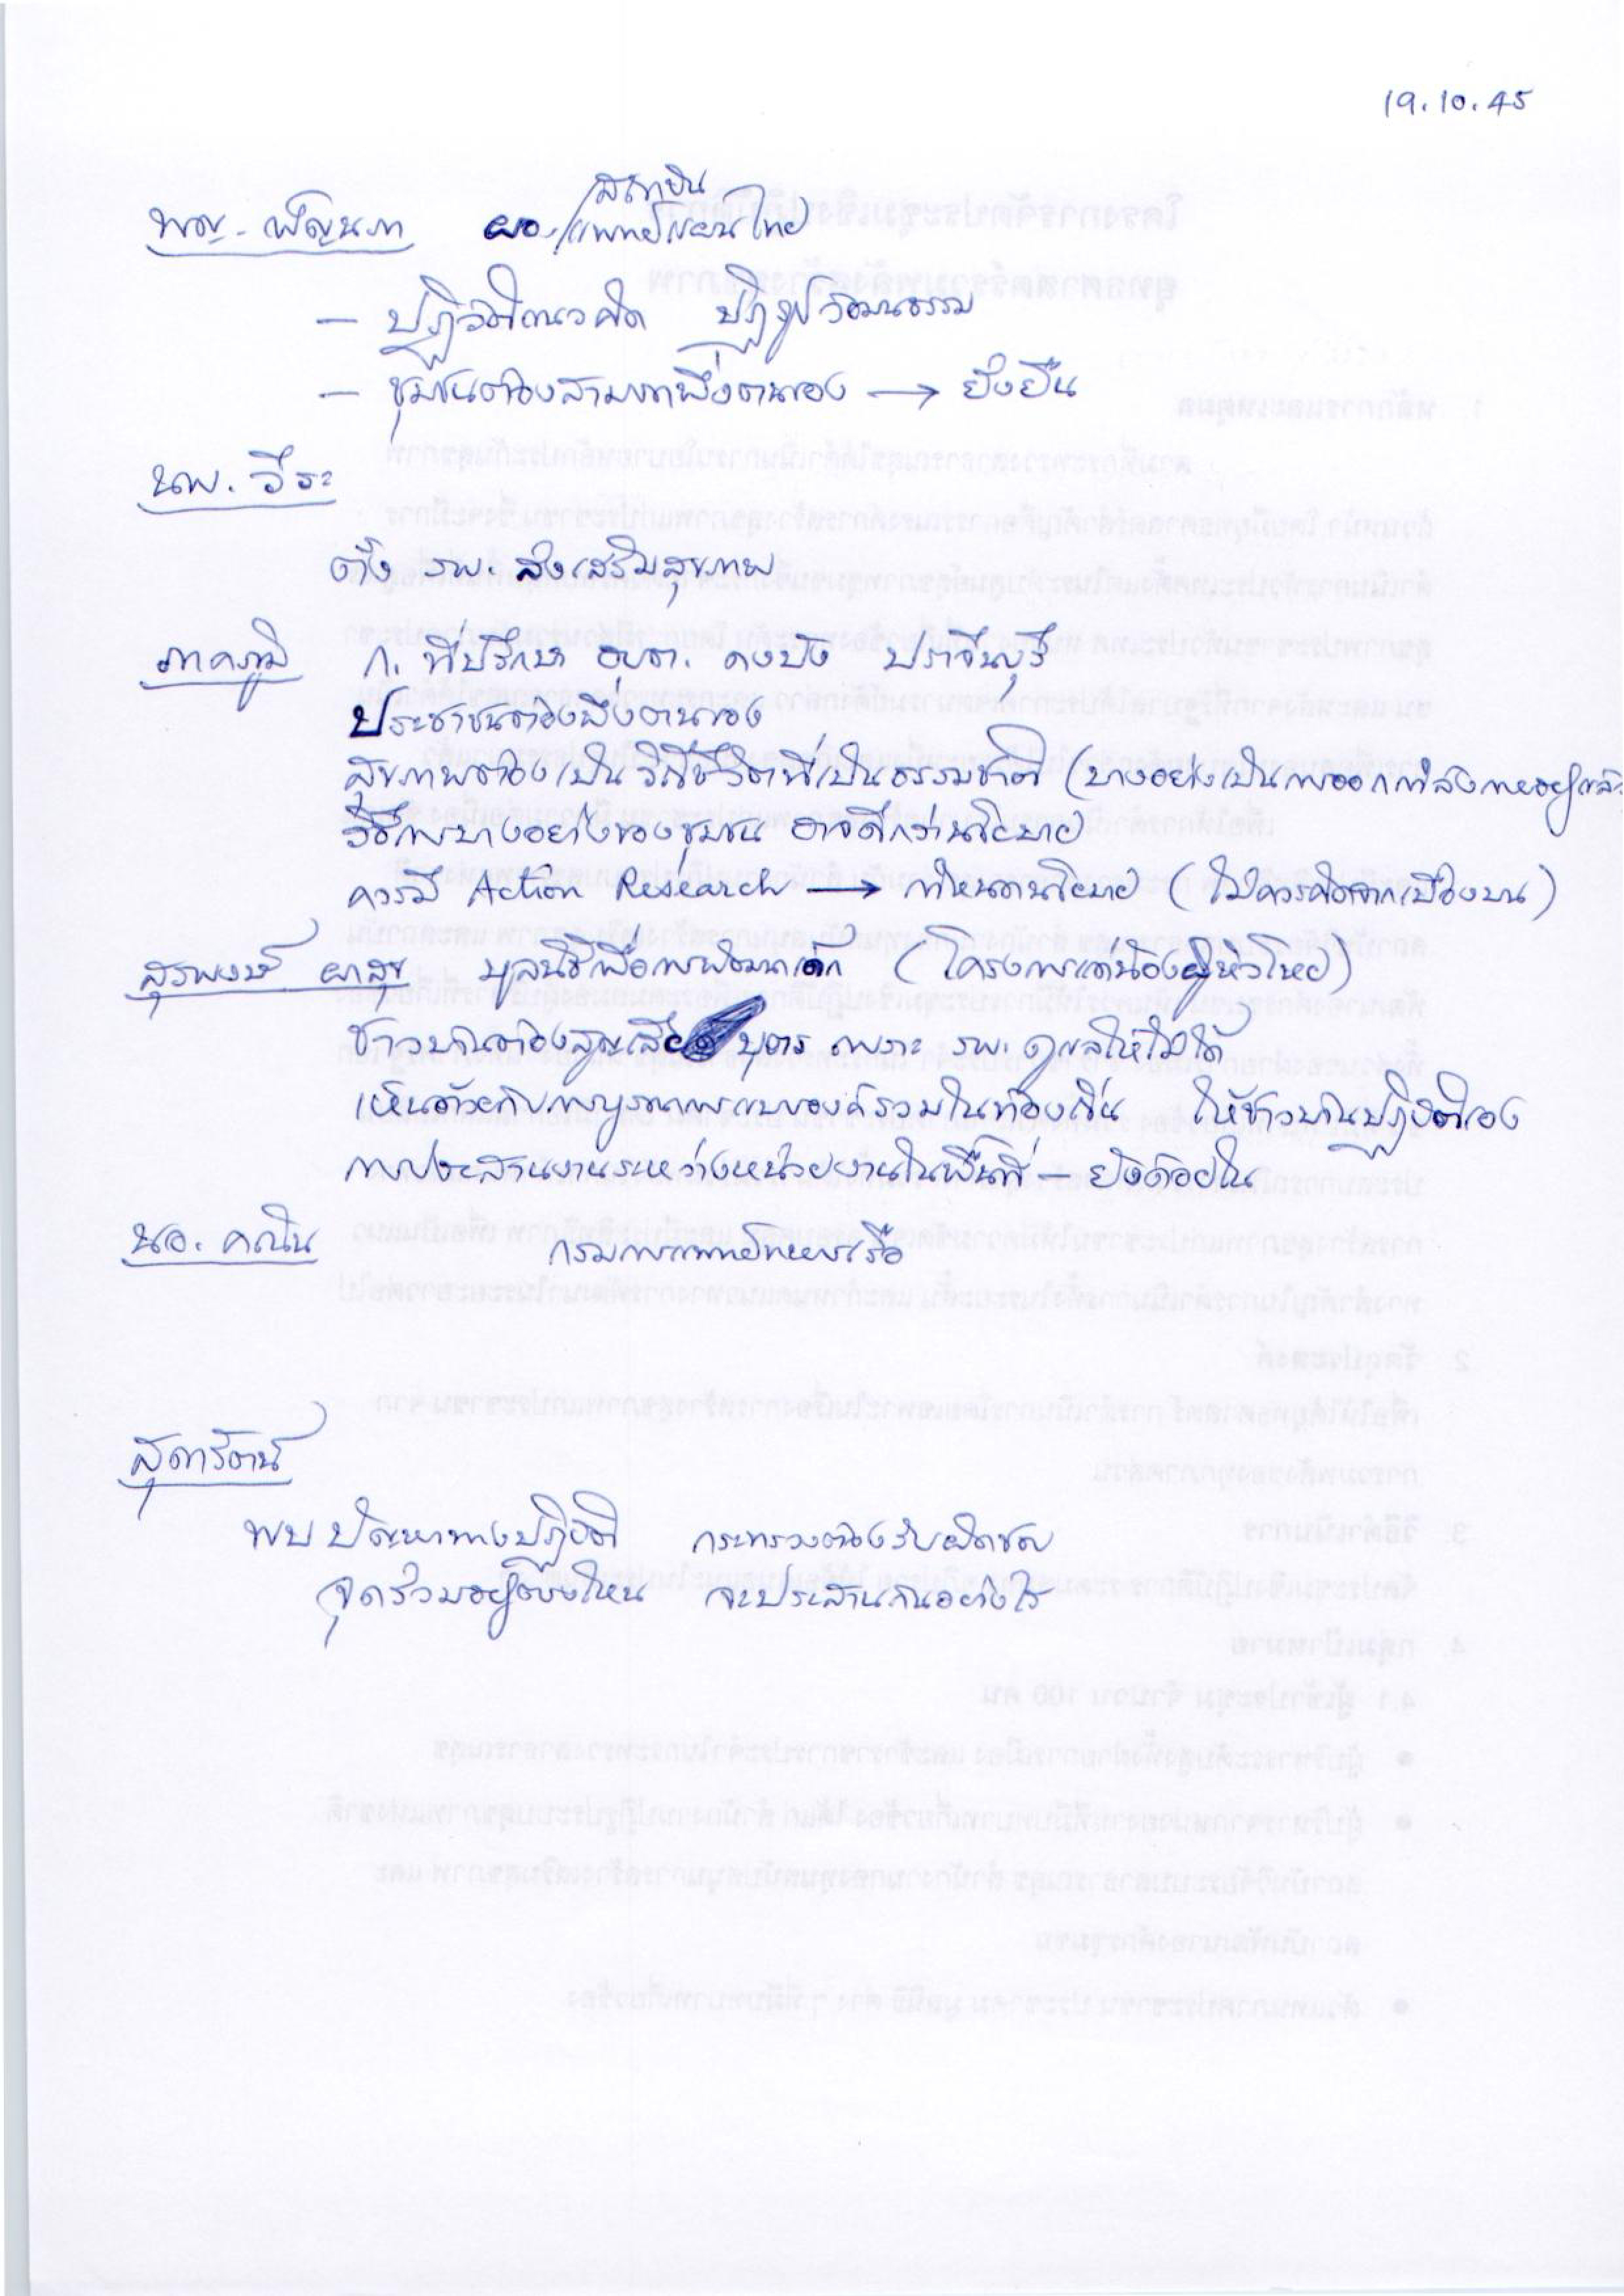 19.10.45
สถาบัน
พญ. เพ็ญนภา ผอ. แพทย์แผนไทย
– ปฏิวัติแนวคิด ปฏิรูปวัฒนธรรม
– ชุมชนต้องสามารถพึ่งตนเอง → ยั่งยืน
นพ. วีระ
ตั้ง รพ. ส่งเสริมสุขภาพ
ภาคภูมิ ก. ที่ปรึกษา อบต. ดงบัง ปราจีนบุรี
ประชาชนต้องพึ่งตนเอง
สุขภาพต้องเป็นวิถีชีวิตที่เป็นธรรมชาติ (บางอย่างเป็นการออกกำลังกายอยู่แล้ว
วิธีการบางอย่างของชุมชน อาจดีกว่านโยบาย
ควรมี Action Research → กำหนดนโยบาย (ไม่ควรคิดจากเบื้องบน)
สุรพงษ์ ผาสุข มูลนิธิเพื่อการพัฒนาเด็ก (โครงการแด่น้องผู้หิวโหย)
ชาวบ้านต้องสูญเสีย บุตร เพราะ รพ. ดูแลให้ไม่ได้
เห็นด้วยกับการบูรณาการแบบองค์รวมในท้องถิ่น ให้ชาวบ้านปฏิบัติเอง
การประสานงานระหว่างหน่วยงานในพื้นที่ – ยังด้อยใน
นอ. คณิน กรมการแพทย์ทหารเรือ
สุดารัตน์
พบปัญหาทางปฏิบัติ กระทรวงต้องรับผิดชอบ
จุดร่วมอยู่ตรงไหน จะประสานกันอย่างไร